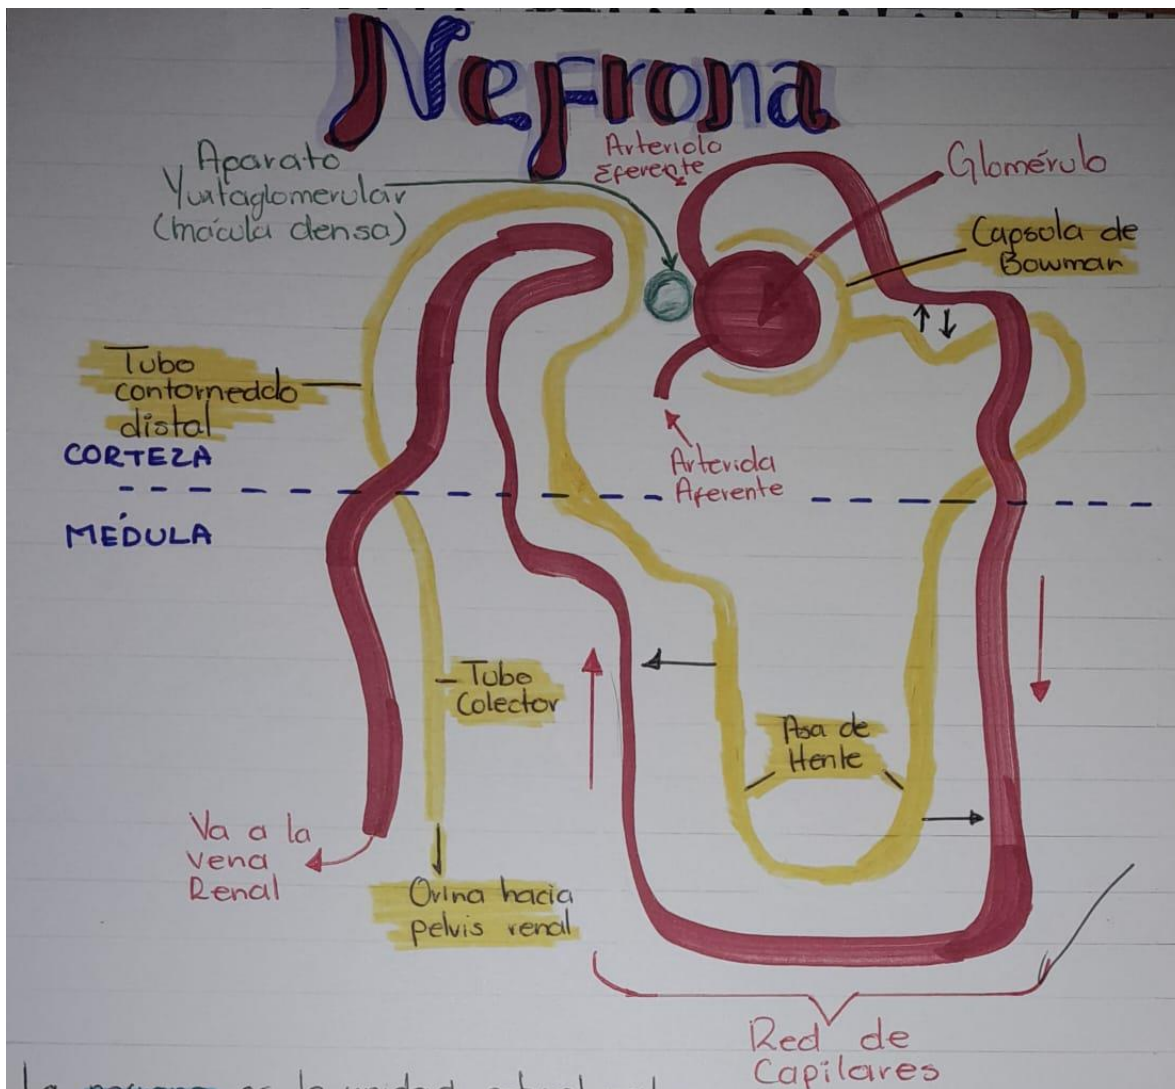 Nefrona
Aparato
Yuxtaglomerular
(mácula densa)
Arteriola
Eferente
Glomérulo
Capsula de
Bowman
Tubo
contorneddo
distal
CORTEZA
Arteriola
Aferente
MÉDULA
Tubo
Colector
Asa de
Henle
Va a la
vena
Renal
Orina hacia
pelvis renal
Red de
Capilares